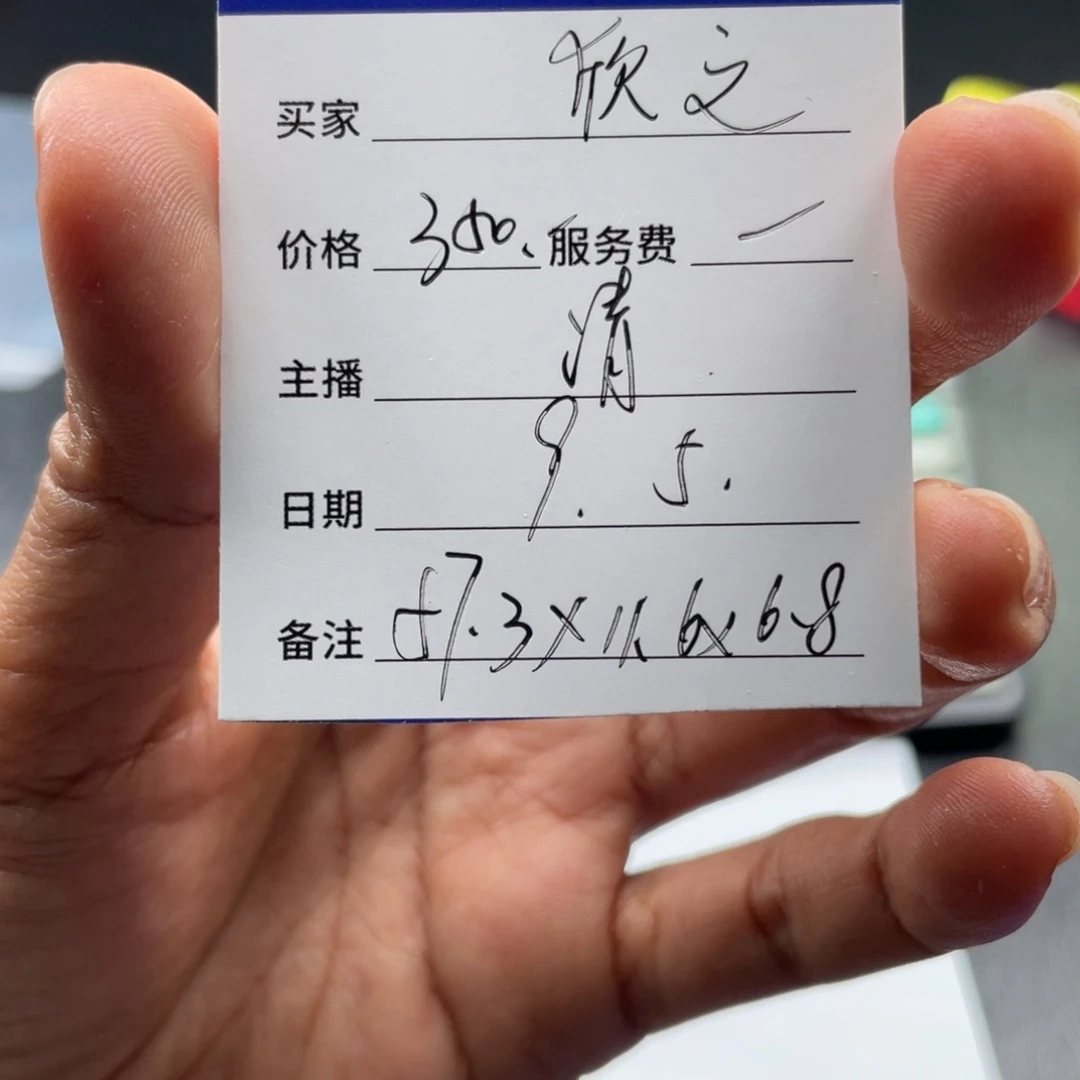 买家 欣之
价格 350. 服务费 一
主播 清
日期 9. 5.
备注 57.3×11.6×6.8